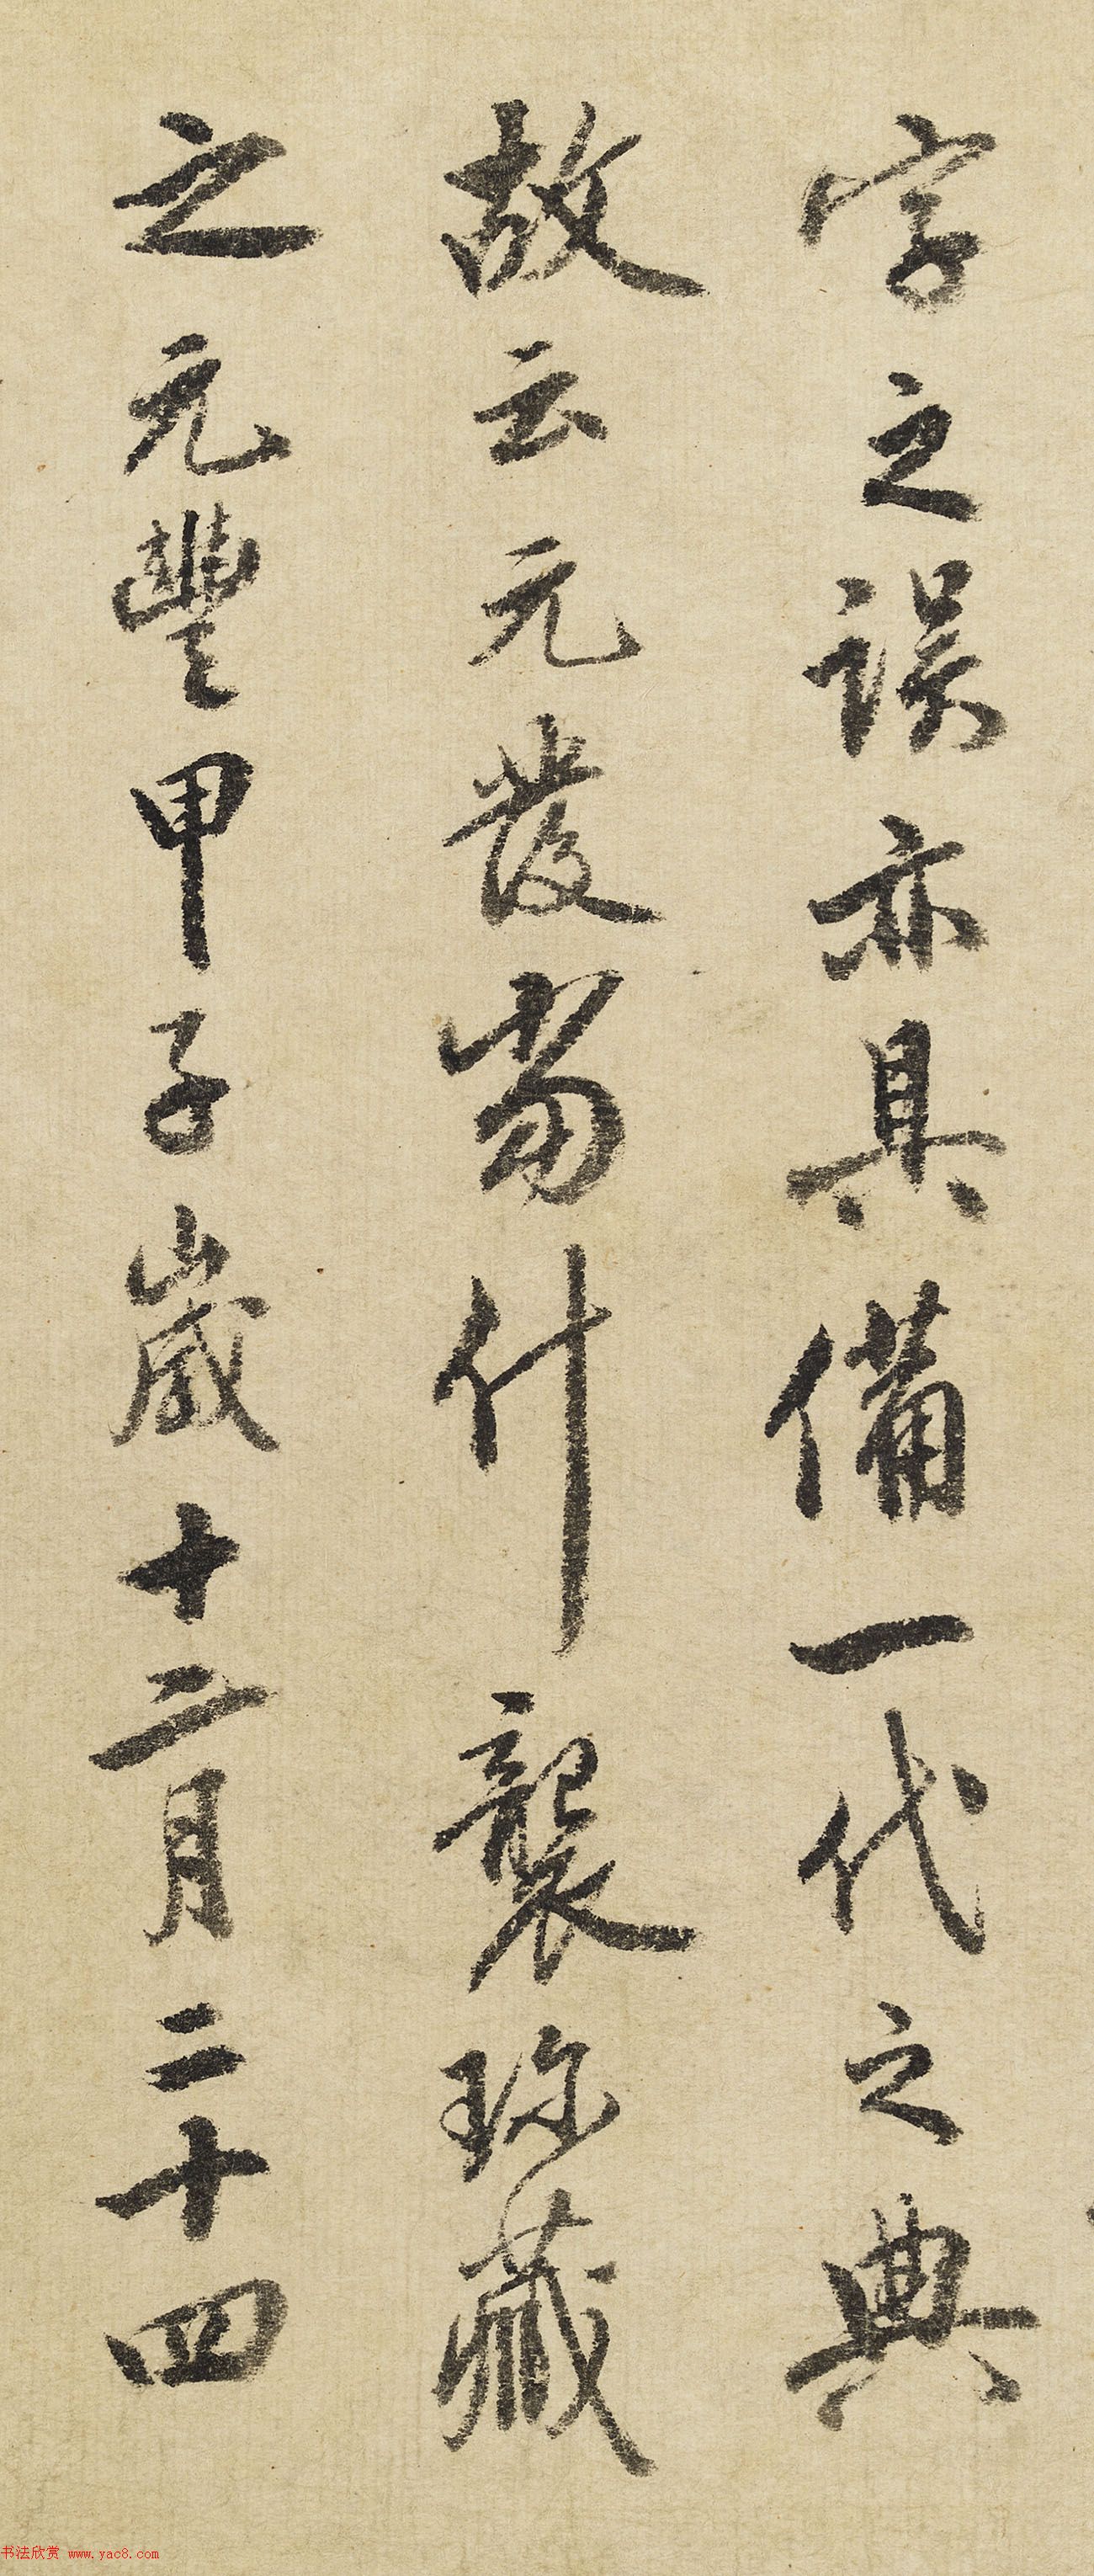 字之误亦具備一代之典
故云元發當什襲珎藏
之元豐甲子歲十二月二十四
书法欣赏 www.yac8.com